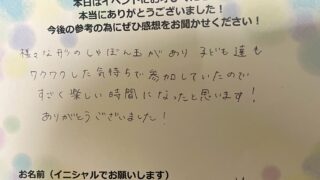 本日はイベントにお
本当にありがとうございました！
今後の参考の為にぜひ感想をお聞かせください！
様々な形のしゃぼん玉があり 子ども達も
ワクワクした気持ちで参加していたので
すごく楽しい時間になったと思います！
ありがとうございました！
お名前（イニシャルでお願いします）